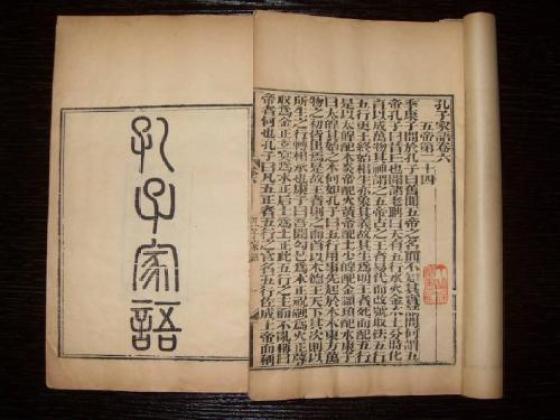 孔子家語卷六
五帝第二十四
季康子問於孔子曰舊聞五帝之名而不知其實請問何謂五
帝孔子曰昔丘也聞諸老聃曰天有五行水火金木土分時化
育以成萬物其神謂之五帝古之王者易代而改號取法五行
五行更王終始相生亦象其義故其生爲明王者死而配五行
是以太皡配木炎帝配火黃帝配土少皡配金顓頊配水康子
曰太皡其始之木何如孔子曰五行用事先起於木木東方萬
物之初皆出焉是故王者則之而首以木德王天下其次則以
所生之行轉相承也康子曰吾聞勾芒爲木正祝融爲火正蓐
收爲金正玄冥爲水正后土爲土正此五行之主而不亂稱曰
帝者何也孔子曰凡五正者五行之官名五行佐成上帝而稱
孔子家語